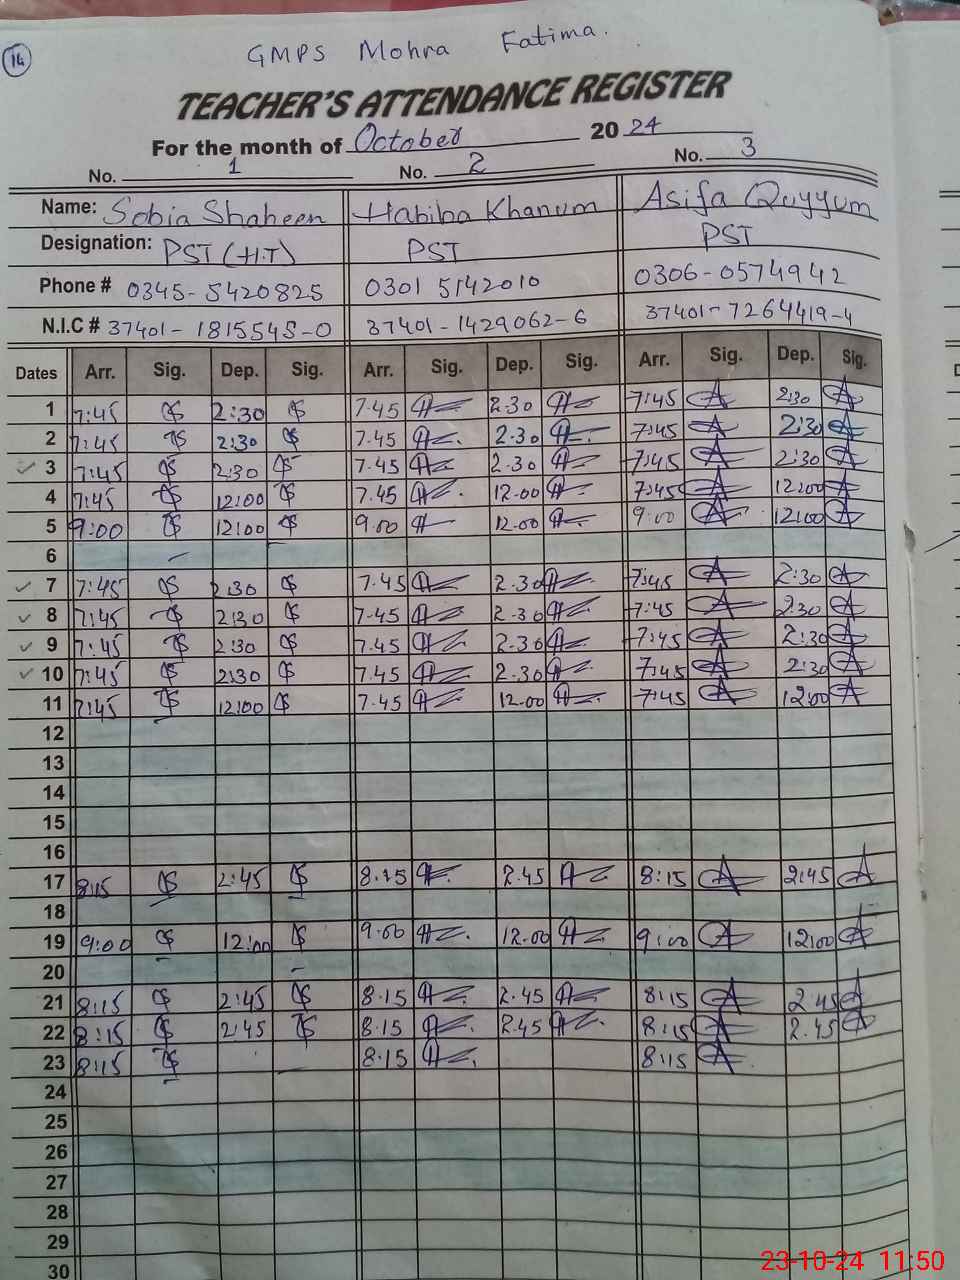 14
GMPS Mohra Fatima.
TEACHER'S ATTENDANCE REGISTER
For the month of October 2024
No. 1 No. 2 No. 3
Name: Sobia Shaheen Habiba Khanum Asifa Quyyum
Designation: PST (H.T) PST PST
Phone # 0345-5420825 0301 5142010 0306-0574942
N.I.C # 37401-1815548-0 37401-1429062-6 37401-7264419-4
Dates Arr. Sig. Dep. Sig. Arr. Sig. Dep. Sig. Arr. Sig. Dep. Sig.
1 7:45 2:30 7.45 2.30 7:45 2:30
2 7:45 2:30 7.45 2.30 7:45 2:30
3 7:45 2:30 7.45 2.30 7:45 2:30
4 7:45 12:00 7.45 12.00 7:45 12:00
5 9:00 12:00 9.00 12.00 9:00 12:00
6
7 7:45 2:30 7.45 2.30 7:45 2:30
8 7:45 2:30 7.45 2.30 7:45 2:30
9 7:45 2:30 7.45 2.30 7:45 2:30
10 7:45 2:30 7.45 2.30 7:45 2:30
11 7:45 12:00 7.45 12.00 7:45 12:00
12
13
14
15
16
17 8:15 2:45 8.15 2.45 8:15 2:45
18
19 9:00 12:00 9.00 12.00 9:00 12:00
20
21 8:15 2:45 8.15 2.45 8:15 2.45
22 8:15 2:45 8.15 2.45 8:15 2.45
23 8:15 8.15 8:15
24
25
26
27
28
29
30
23-10-24 11:50